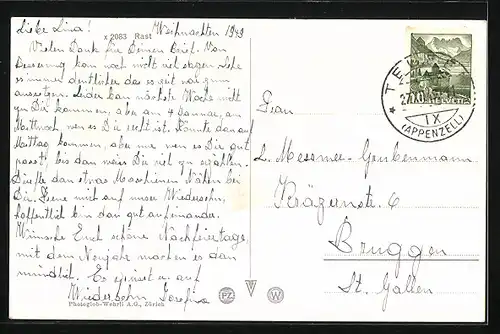 Liebe Lina! Weihnachten 1949
x 2083 Rast
Vielen Dank für Deinen Brief. Von
Besserung kann noch nicht viel sagen. Sehe
es immer deutlicher das es Zeit hat zum
Leider kan nächste Woche nicht
zu Dir kommen, aber am 4 Januar, am
Mittwoch, wen es Dir recht ist. Könnte dan auf
Mittag kommen, aber nur wen es Dir gut
passt, bis dan mein Dir viel zu erzählen.
Dürfte dan etwas Maschienen Nähen bei
Dir. Freue mich auf unser Wiedersehn,
hoffentlich bin dan gut aufeinander.
Wünsche Euch schöne Nachfeiertage,
mit dem Neujahr machen es dan
mündlich. Es grüsst auf
Wiedersehn Josefina
Photoglob-Wehrli A.G., Zürich
PZ W
HELVETIA
TEUFEN
IX
(APPENZELL)
Frau
L. Messmer-Grubenmann
Kräzernstr. 6
Bruggen
St. Gallen